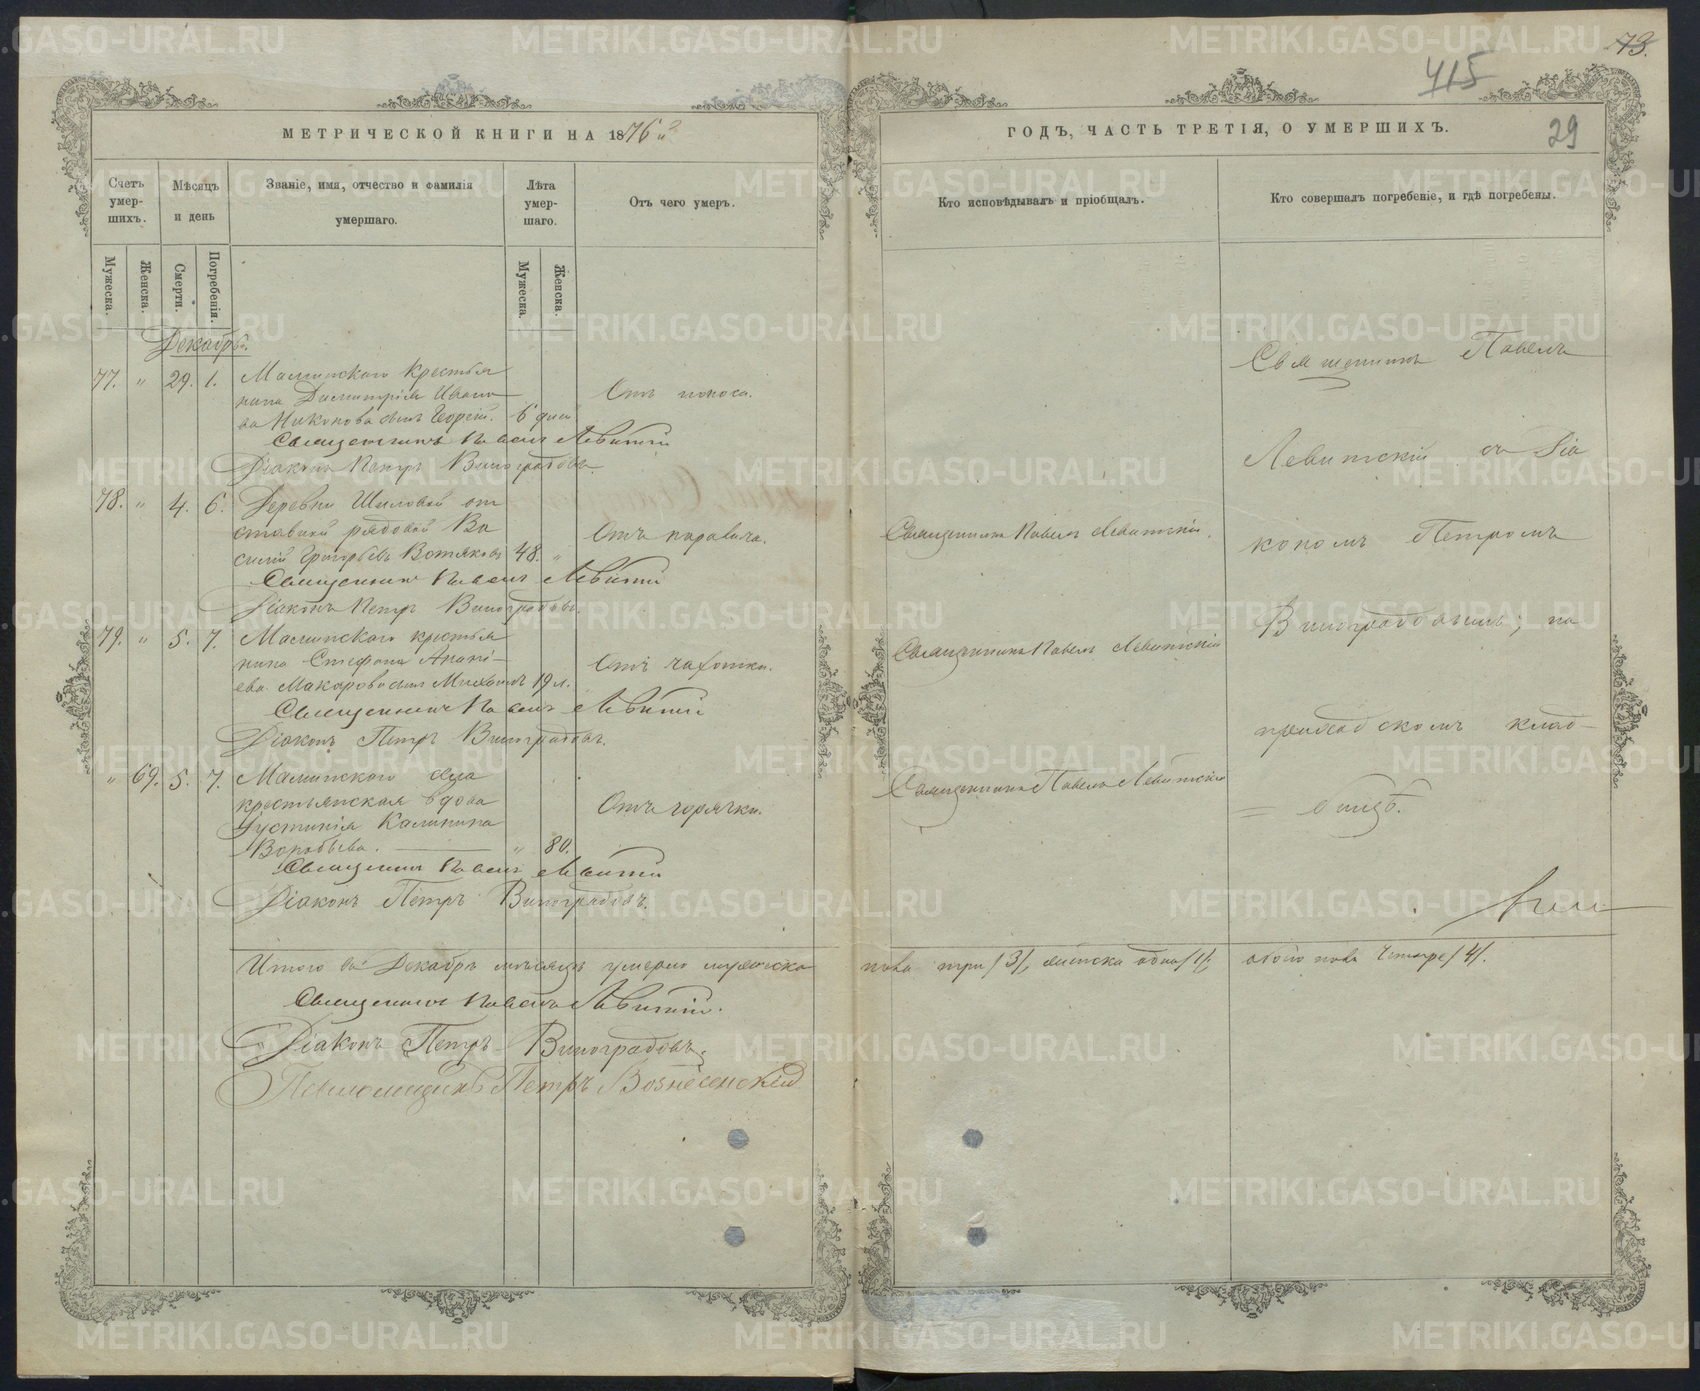 73.
415
29
МЕТРИЧЕСКОЙ КНИГИ НА 1876й
ГОДЪ, ЧАСТЬ ТРЕТІЯ, О УМЕРШИХЪ.
Счетъ умер-шихъ.
Мѣсяцъ и день
Званіе, имя, отчество и фамилія
умершаго.
Лѣта умер-шаго.
Отъ чего умеръ.
Кто исповѣдывалъ и пріобщалъ.
Кто совершалъ погребеніе, и гдѣ погребены.
Мужеска.
Женска.
Смерти.
Погребенія.
Мужеска.
Женска.
Декабрь.
77. " 29. 1. Маминскаго крестья
нина Димитрія Ивано
ва Никонова сынъ Георгій. 6 дней
Отъ поноса.
Священникъ Павелъ Левитскій
Діаконъ Петръ Виноградовъ.
78. " 4. 6. Деревни Шиловой от
ставной рядовой Ва
силій Григорьевъ Вотяковъ 48. "
Отъ паралича.
Священникъ Павелъ Левитскій.
Священникъ Павелъ Левитскій
Діаконъ Петръ Виноградовъ.
79. " 5. 7. Маминскаго крестья
нина Стефана Анані-
ева Макарова сынъ Михаилъ 19 л.
Отъ чахотки.
Священникъ Павелъ Левитскій
Священникъ Павелъ Левитскій
Діаконъ Петръ Виноградовъ.
" 69. 5. 7. Маминскаго села
крестьянская вдова
Іустинія Калинина
Воробьева. " 80.
Отъ горячки.
Священникъ Павелъ Левитскій
Священникъ Павелъ Левитскій
Діаконъ Петръ Виноградовъ.
Священникъ Павелъ
Левитскій съ діа
кономъ Петромъ
Виноградовымъ; на
приходскомъ клад-
= бищѣ.
Итого въ Декабрѣ мѣсяцѣ умерло мужеска пола три /3/, женска одна /1/, обоего пола четыре /4/.
Священникъ Павелъ Левитскій.
Діаконъ Петръ Виноградовъ.
Псаломщикъ Петръ Вознесенскій
METRIKI.GASO-URAL.RU